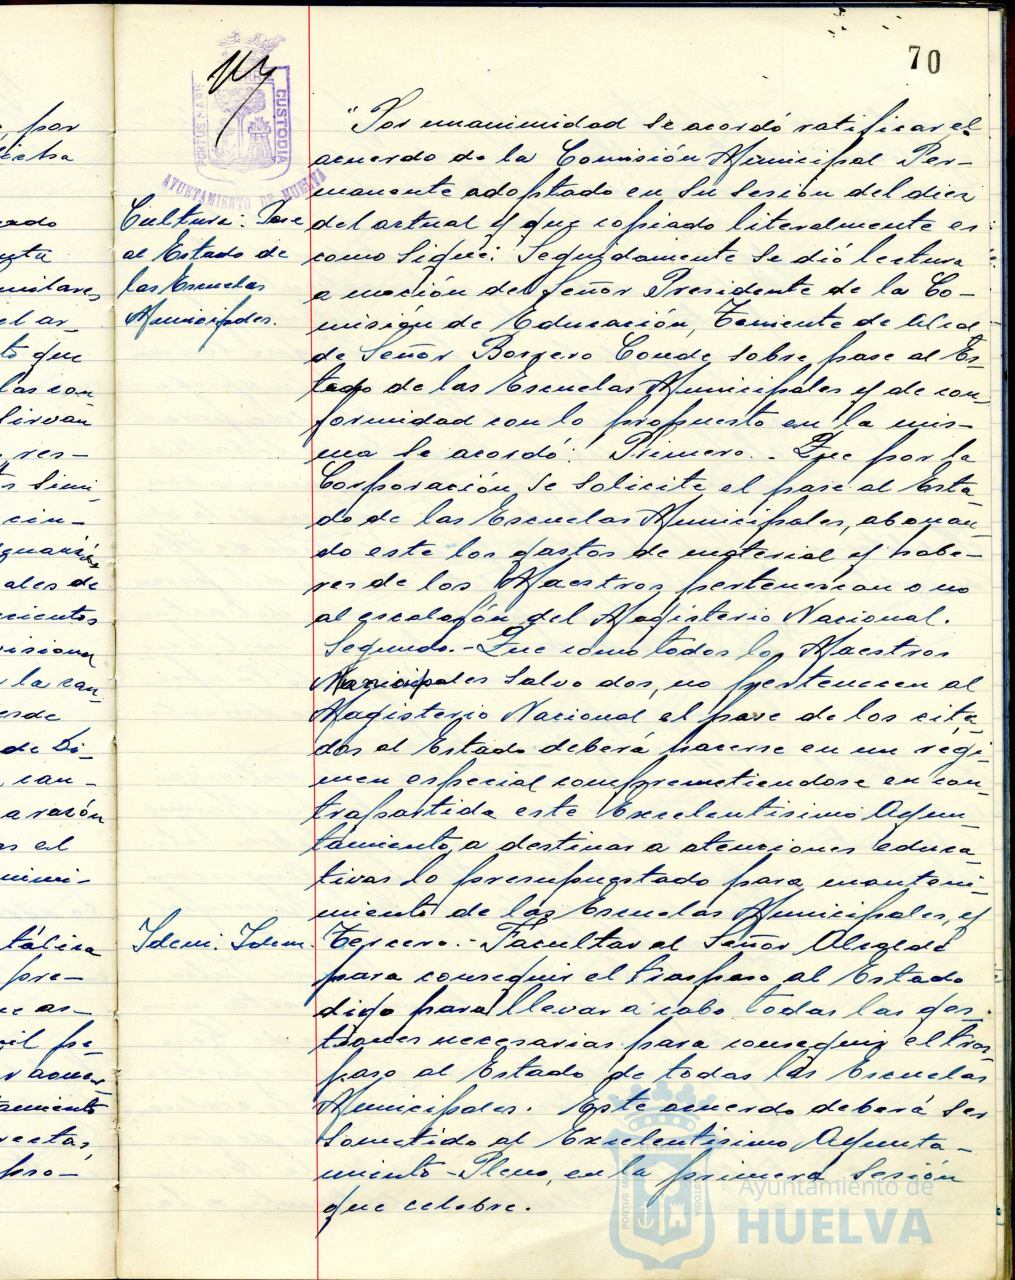 70
PORTUS MARIS
CUSTODIA
AYUNTAMIENTO DE HUELVA
Cultura: Pase
al Estado de
las Escuelas
Municipales.
"Por unanimidad se acordó ratificar el
acuerdo de la Comisión Municipal Per-
manente adoptado en su sesión del diez
del actual y que copiado literalmente es
como sigue: Seguidamente se dió lectura
a moción del Señor Presidente de la Co-
misión de Educación, Teniente de Alcal
de Señor Borrero Conde sobre pase al Es-
tado de las Escuelas Municipales y de con-
formidad con lo propuesto en la mis-
ma se acordó: Primero.- Que por la
Corporación se solicite el pase al Esta-
do de las Escuelas Municipales, abonan-
do este los gastos de material y habe-
res de los Maestros pertenezcan o no
al escalafón del Magisterio Nacional.
Segundo.- Que como todos los Maestros
Municipales salvo dos, no pertenecen al
Magisterio Nacional el pase de los cita-
dos al Estado deberá hacerse en un régi-
men especial comprometiendose en con-
trapartida este Excelentisimo Ayun-
tamiento a destinar a atenciones educa-
tivas lo presupuestado para manteni-
miento de las Escuelas Municipales, y
Idem. Idem.
Tercero.- Facultar al Señor Alcalde
para conseguir el traspaso al Estado
digo para llevar a cabo todas las ges-
tiones necesarias para conseguir el tras-
paso al Estado de todas las Escuelas
Municipales. Este acuerdo deberá ser
sometido al Excelentisimo Ayunta-
miento-Pleno, en la primera sesión
que celebre.
por
dicha
que
res-
cin-
ales de
la can-
de Di-
can-
a razón
as el
pre-
pro-
Ayuntamiento de
HUELVA